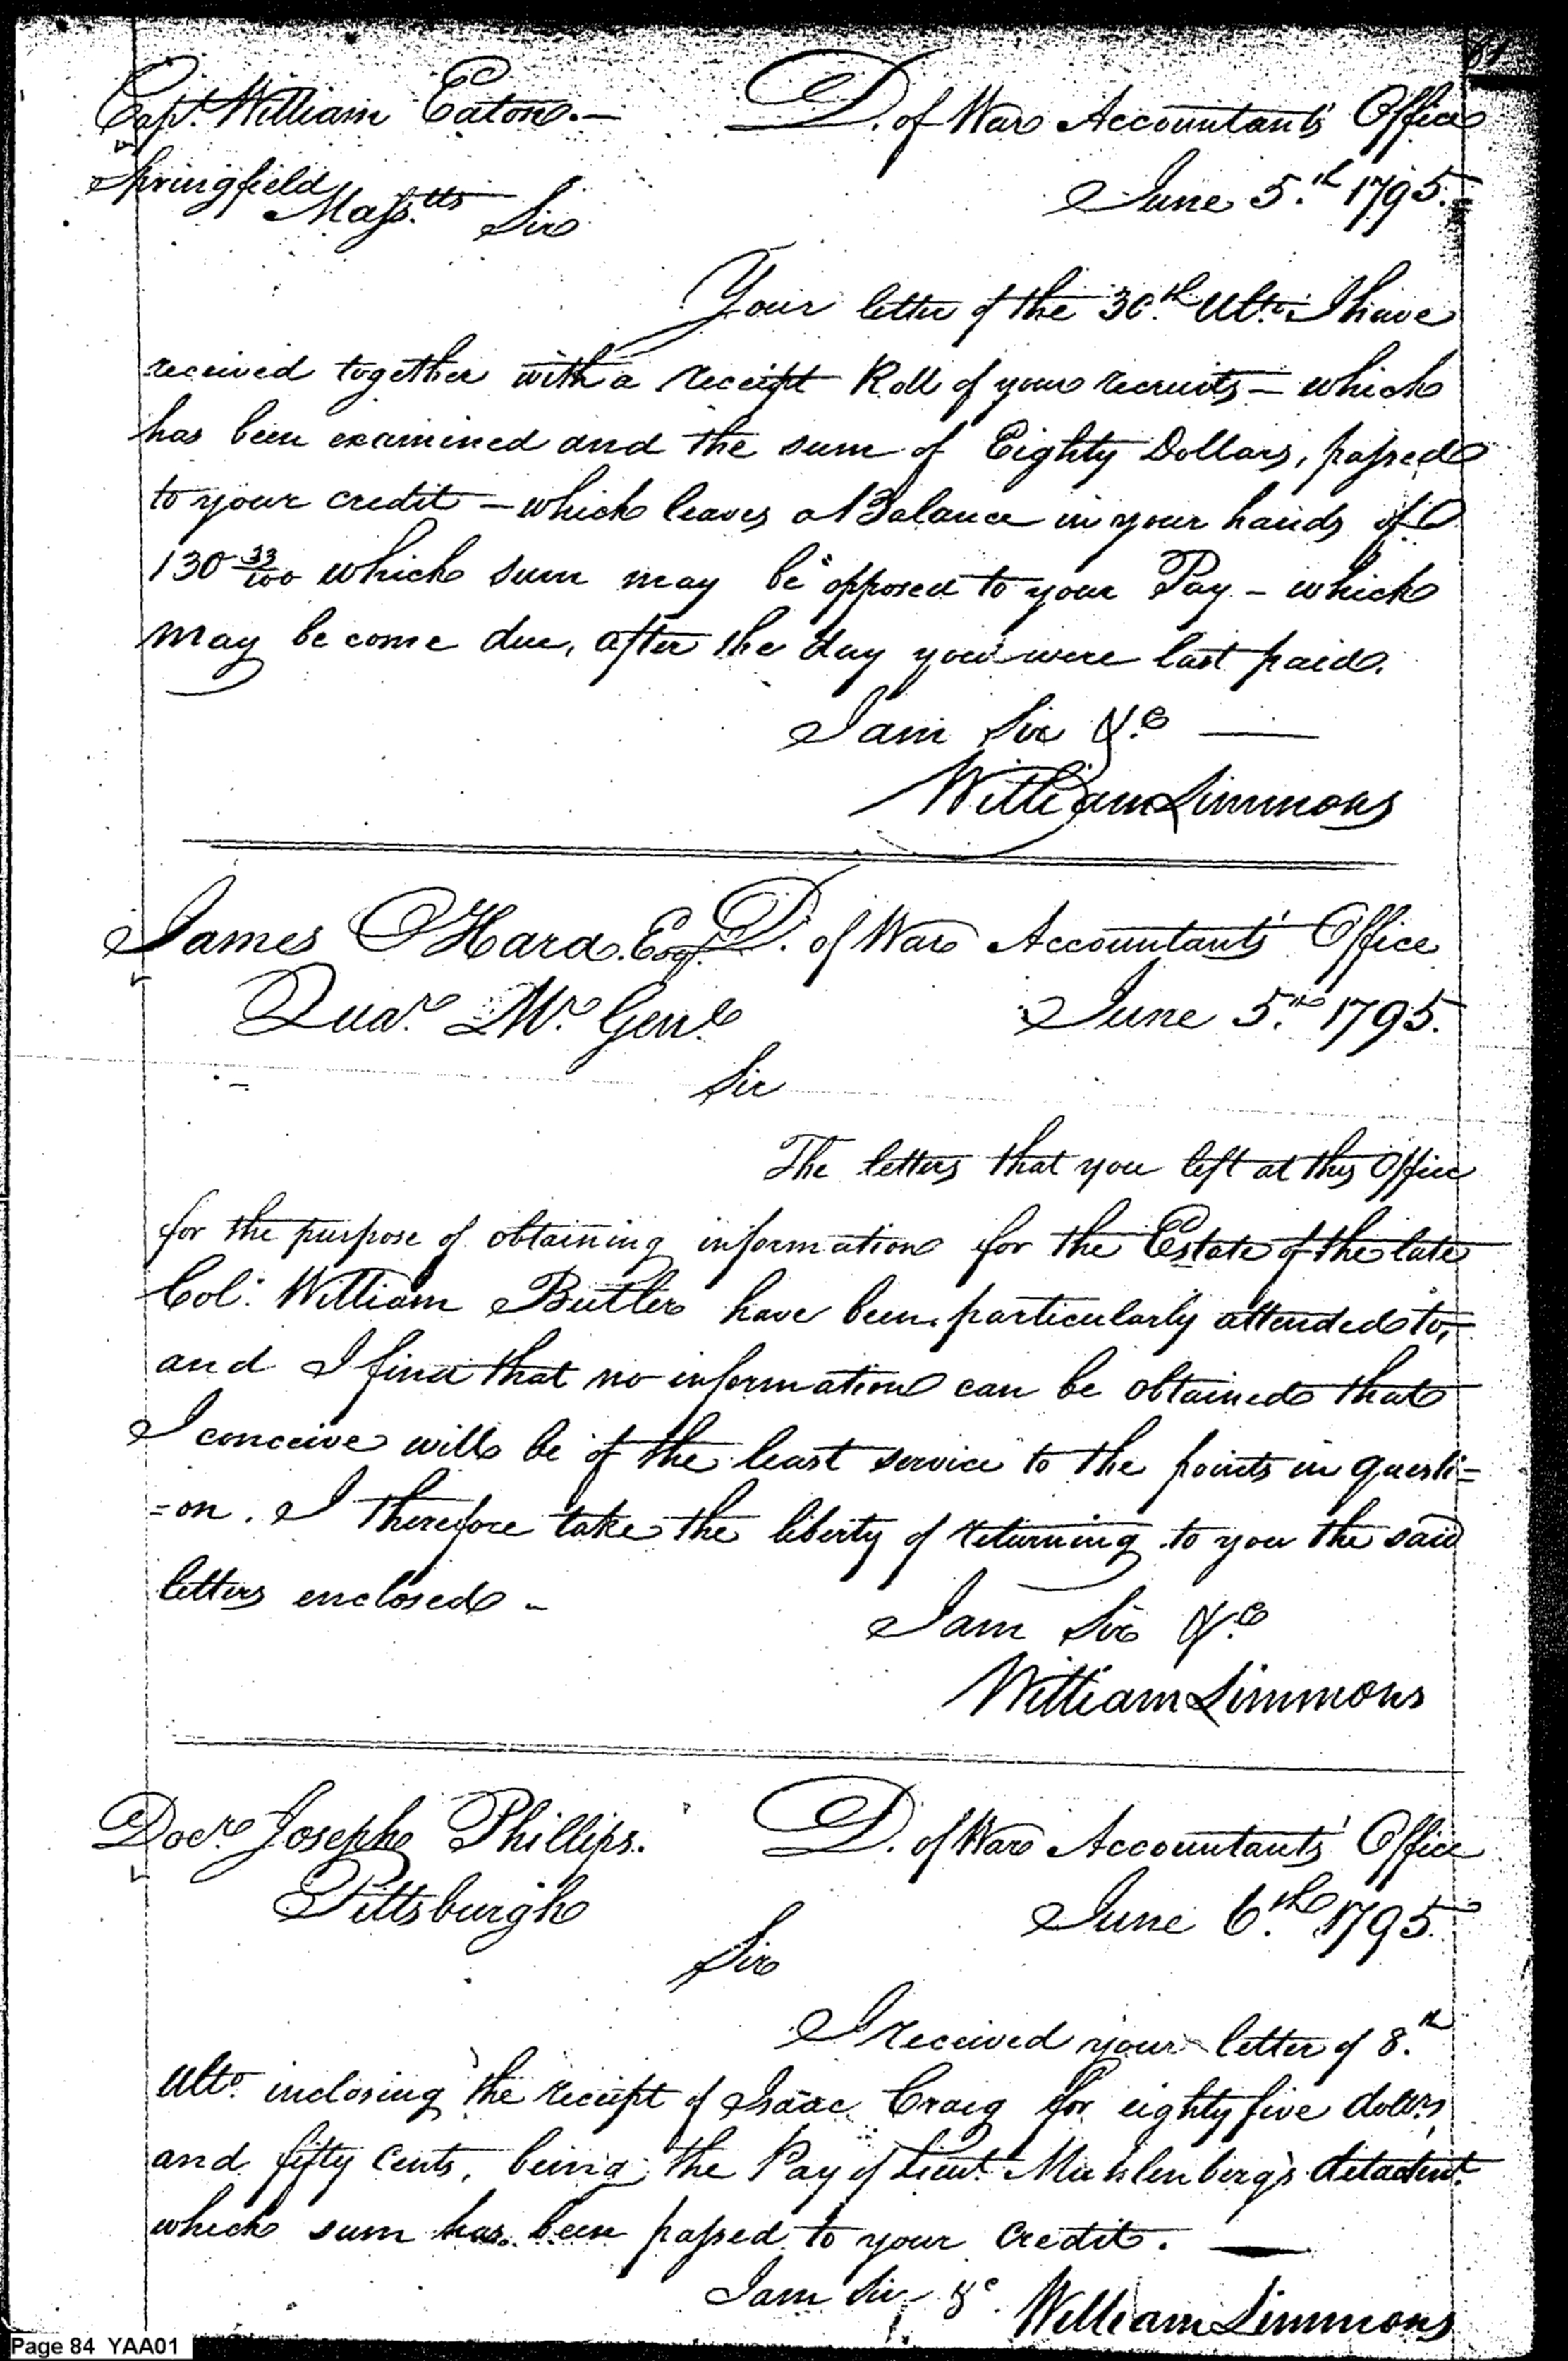 Capt. William Eaton.— D. of War Accountants' Office
Springfield June 5.th 1795.
Mass.tts Sir
Your letter of the 30.th Ulto. I have
received together with a receipt Roll of your recruits — which
has been examined and the sum of Eighty Dollars, passed
to your credit — which leaves a Balance in your hands of
130 33/100 which sum may be opposed to your Pay — which
may become due, after the day you were last paid.
I am Sir &.c
William Simmons
James OHara. Esqr. D. of War Accountants' Office
Quar. Mr. Genl. June 5.th 1795.
Sir
The letters that you left at this Office
for the purpose of obtaining information for the Estate of the late
Col. William Butler have been particularly attended to,
and I find that no information can be obtained that
I conceive will be of the least service to the points in questi=
=on. I therefore take the liberty of returning to you the said
letters enclosed —
I am Sir &.c
William Simmons
Docr. Joseph Phillips. D. of War Accountants' Office
Pittsburgh June 6.th 1795.
Sir
I received your letter of 8.th
Ulto. inclosing the receipt of Isaac Craig for eighty five dollrs,
and fifty Cents, being the Pay of Lieut. Muhlenberg's detachmt.
which sum has been passed to your Credit.
I am Sir &c. William Simmons
Page 84 YAA01